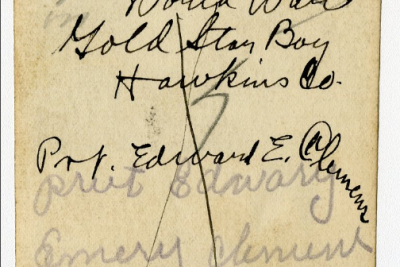 World War
Gold Star Boy
Hawkins Co.
Pvt. Edward E. Clemens
privt Edward
Emery Clement